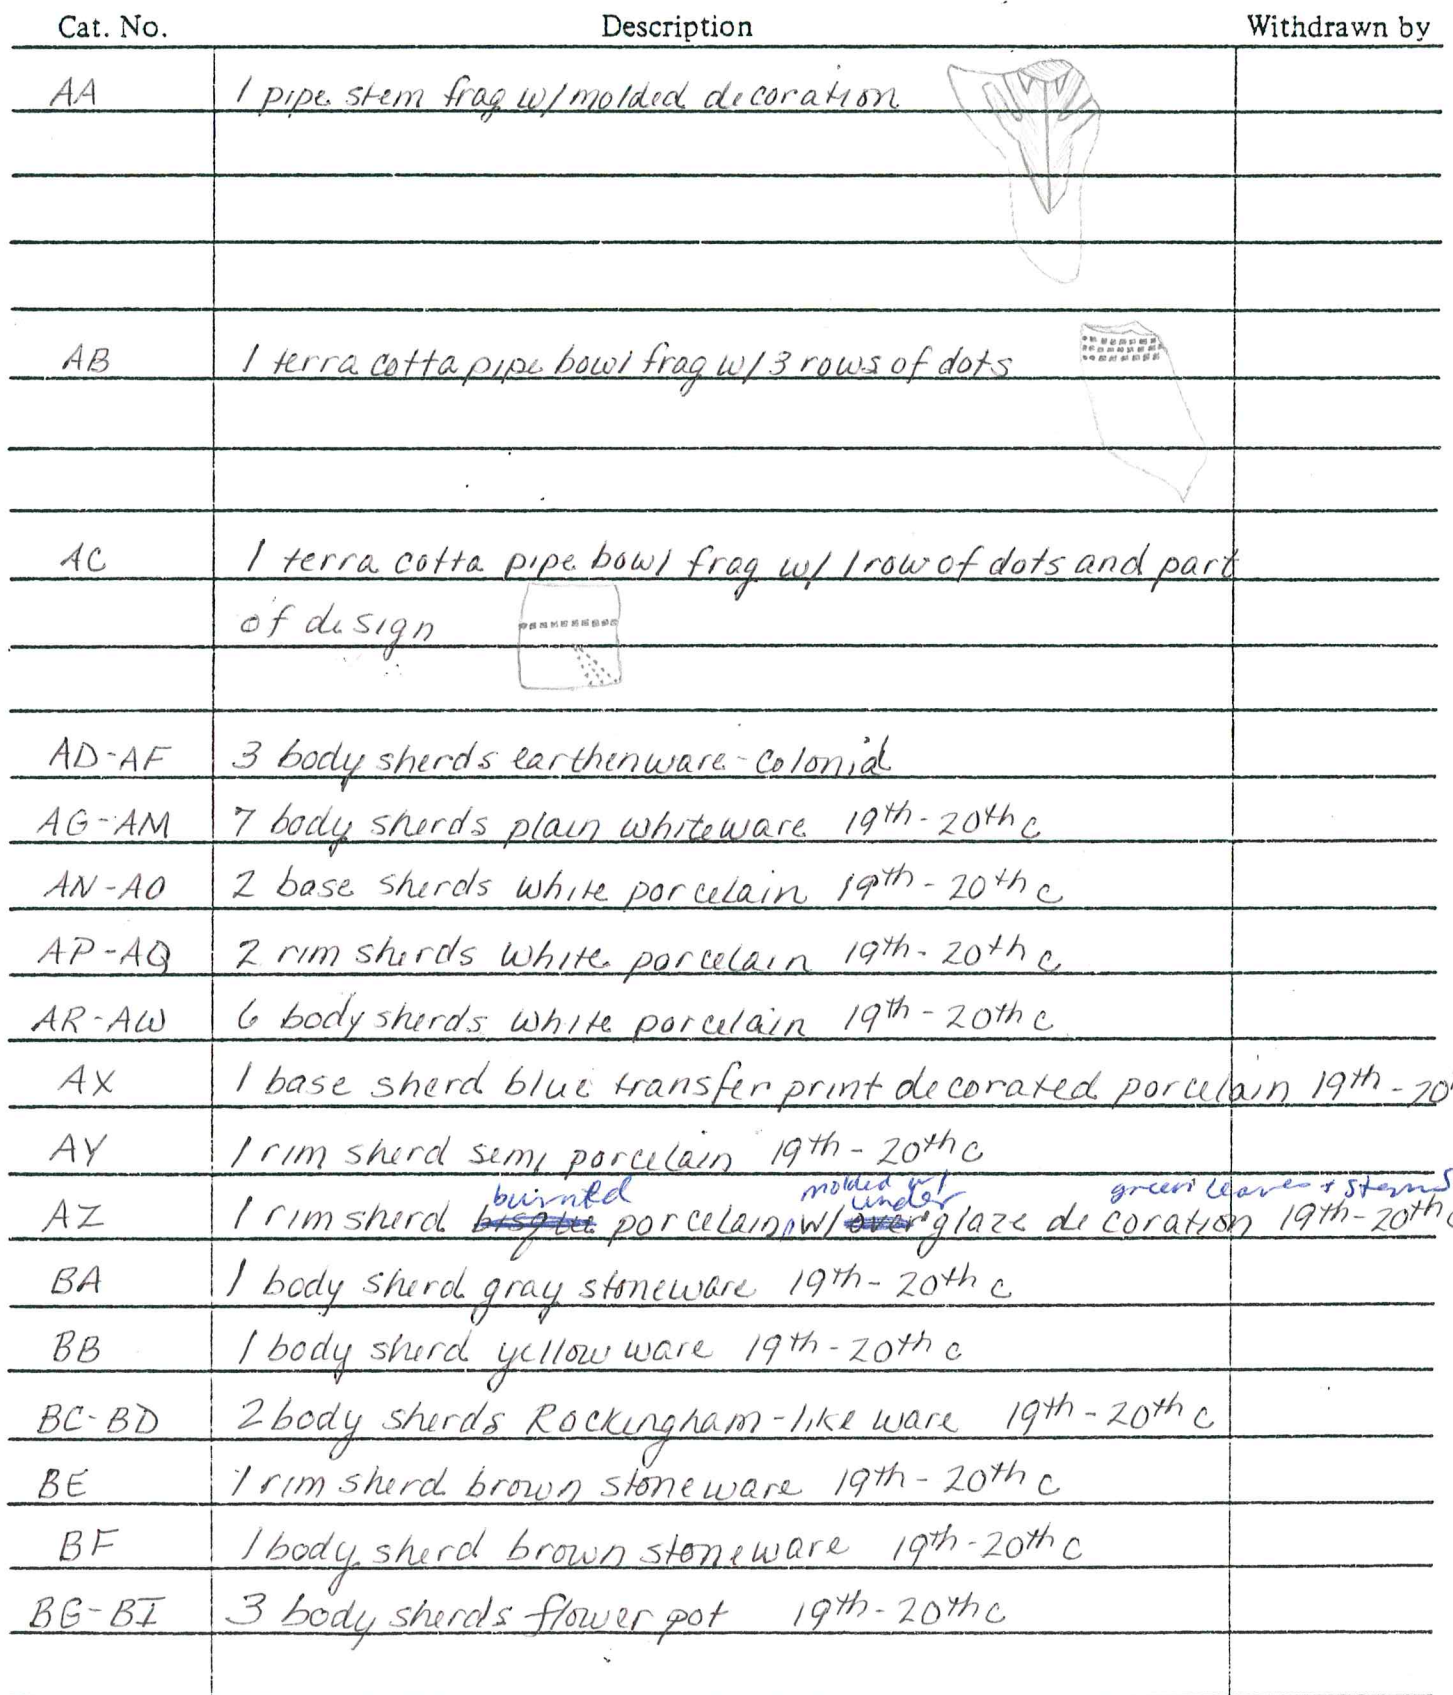 Cat. No. Description Withdrawn by
AA 1 pipe stem frag w/molded decoration
AB 1 terra cotta pipe bowl frag w/3 rows of dots
AC 1 terra cotta pipe bowl frag w/ 1 row of dots and part
of design
AD-AF 3 body sherds earthenware-Colonial
AG-AM 7 body sherds plain whiteware 19th-20th c
AN-AO 2 base sherds white porcelain 19th-20th c
AP-AQ 2 rim sherds white porcelain 19th-20th c
AR-AW 6 body sherds white porcelain 19th-20th c
AX 1 base sherd blue transfer print decorated porcelain 19th-20
AY 1 rim sherd semi porcelain 19th-20th c
burnted molded w/ under green leaves + stems
AZ 1 rim sherd bisque porcelain, w/ over glaze decoration 19th-20th c
BA 1 body sherd gray stoneware 19th-20th c
BB 1 body sherd yellow ware 19th-20th c
BC-BD 2 body sherds Rockingham-like ware 19th-20th c
BE 1 rim sherd brown stoneware 19th-20th c
BF 1 body sherd brown stoneware 19th-20th c
BG-BI 3 body sherds flower pot 19th-20th c